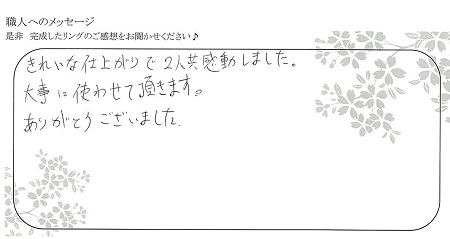 職人へのメッセージ
是非 完成したリングのご感想をお聞かせください♪
きれいな仕上がりで2人共感動しました。
大事に使わせて頂きます。
ありがとうございました。